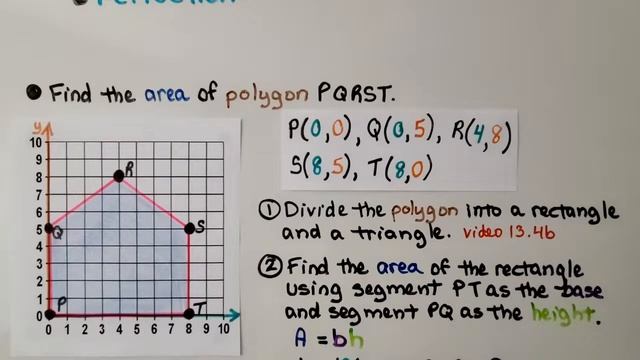 Find the area of polygon PQRST.
P(0,0), Q(0,5), R(4,8)
S(8,5), T(8,0)
① Divide the polygon into a rectangle
and a triangle. video 13.4b
② Find the area of the rectangle
using segment PT as the base
and segment PQ as the height.
A = bh
y
10
9
8
7
6
5
4
3
2
1
0
R
Q
S
P
T
0 1 2 3 4 5 6 7 8 9 10